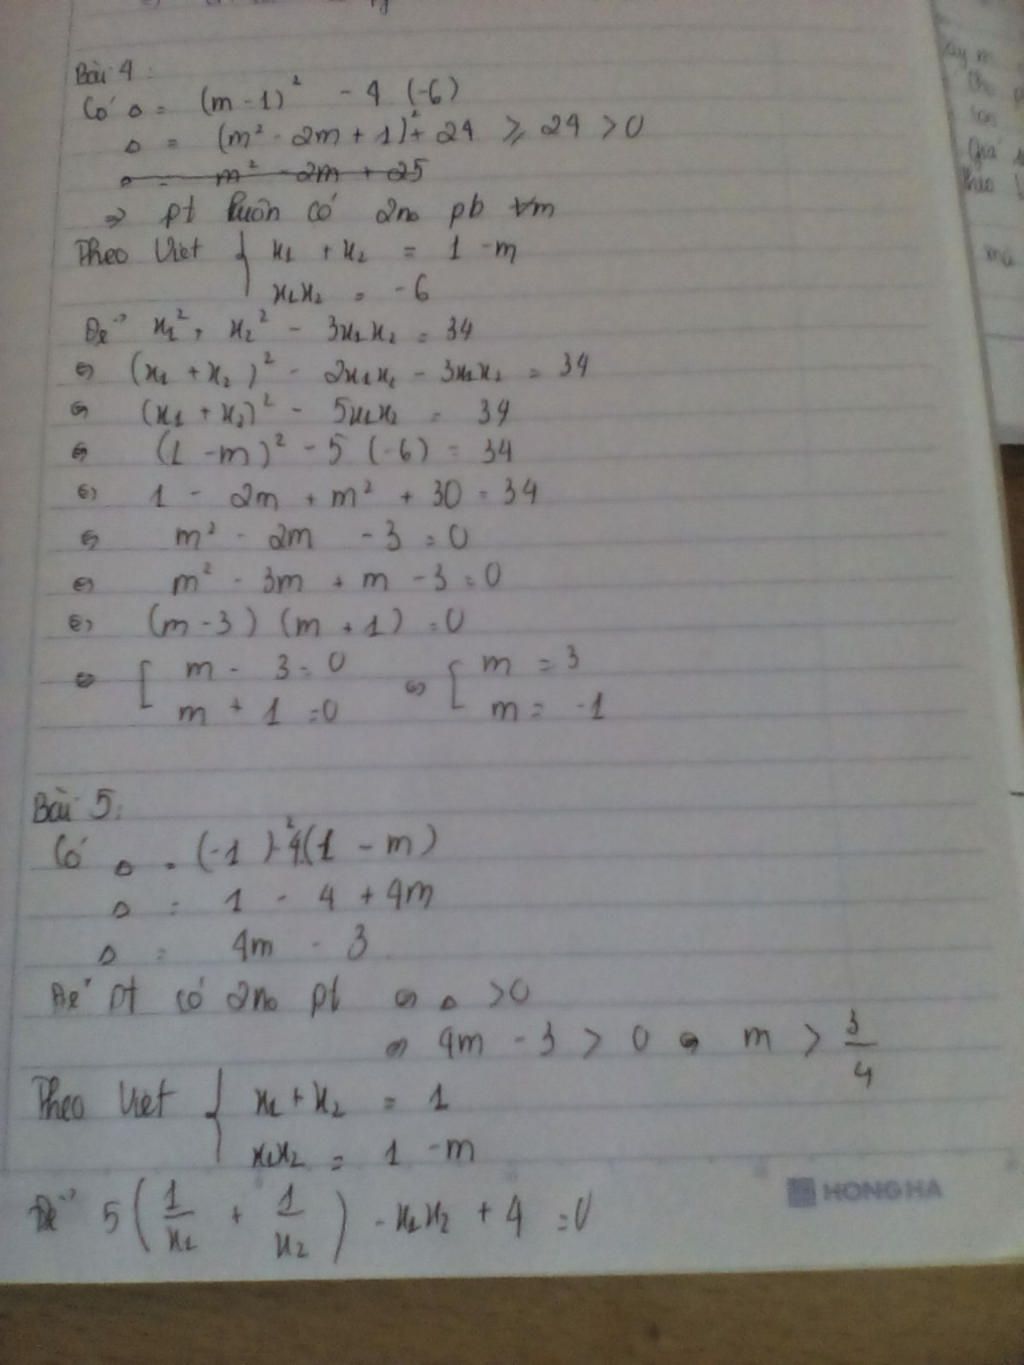 Bài 4:
Có Δ = (m - 1)² - 4 (-6)
Δ = (m² - 2m + 1)² + 24 ⩾ 24 > 0
Δ = m² - 2m + 25
=> pt luôn có 2no pb ∀m
Theo Viet { x₁ + x₂ = 1 - m
x₁x₂ = -6
Để x₁² + x₂² - 3x₁x₂ = 34
⇔ (x₁ + x₂)² - 2x₁x₂ - 3x₁x₂ = 34
⇔ (x₁ + x₂)² - 5x₁x₂ = 34
⇔ (1 - m)² - 5 (-6) = 34
⇔ 1 - 2m + m² + 30 = 34
⇔ m² - 2m - 3 = 0
⇔ m² - 3m + m - 3 = 0
⇔ (m - 3) (m + 1) = 0
⇔ [ m - 3 = 0 ⇔ [ m = 3
m + 1 = 0 m = -1
Bài 5:
Có Δ = (-1)² - 4(1 - m)
Δ = 1 - 4 + 4m
Δ = 4m - 3
Để pt có 2no pb ⇔ Δ > 0
⇔ 4m - 3 > 0 ⇔ m > 3/4
Theo Viet { x₁ + x₂ = 1
x₁x₂ = 1 - m
Để 5 (1/x₁ + 1/x₂) - x₁x₂ + 4 = 0
HONG HA